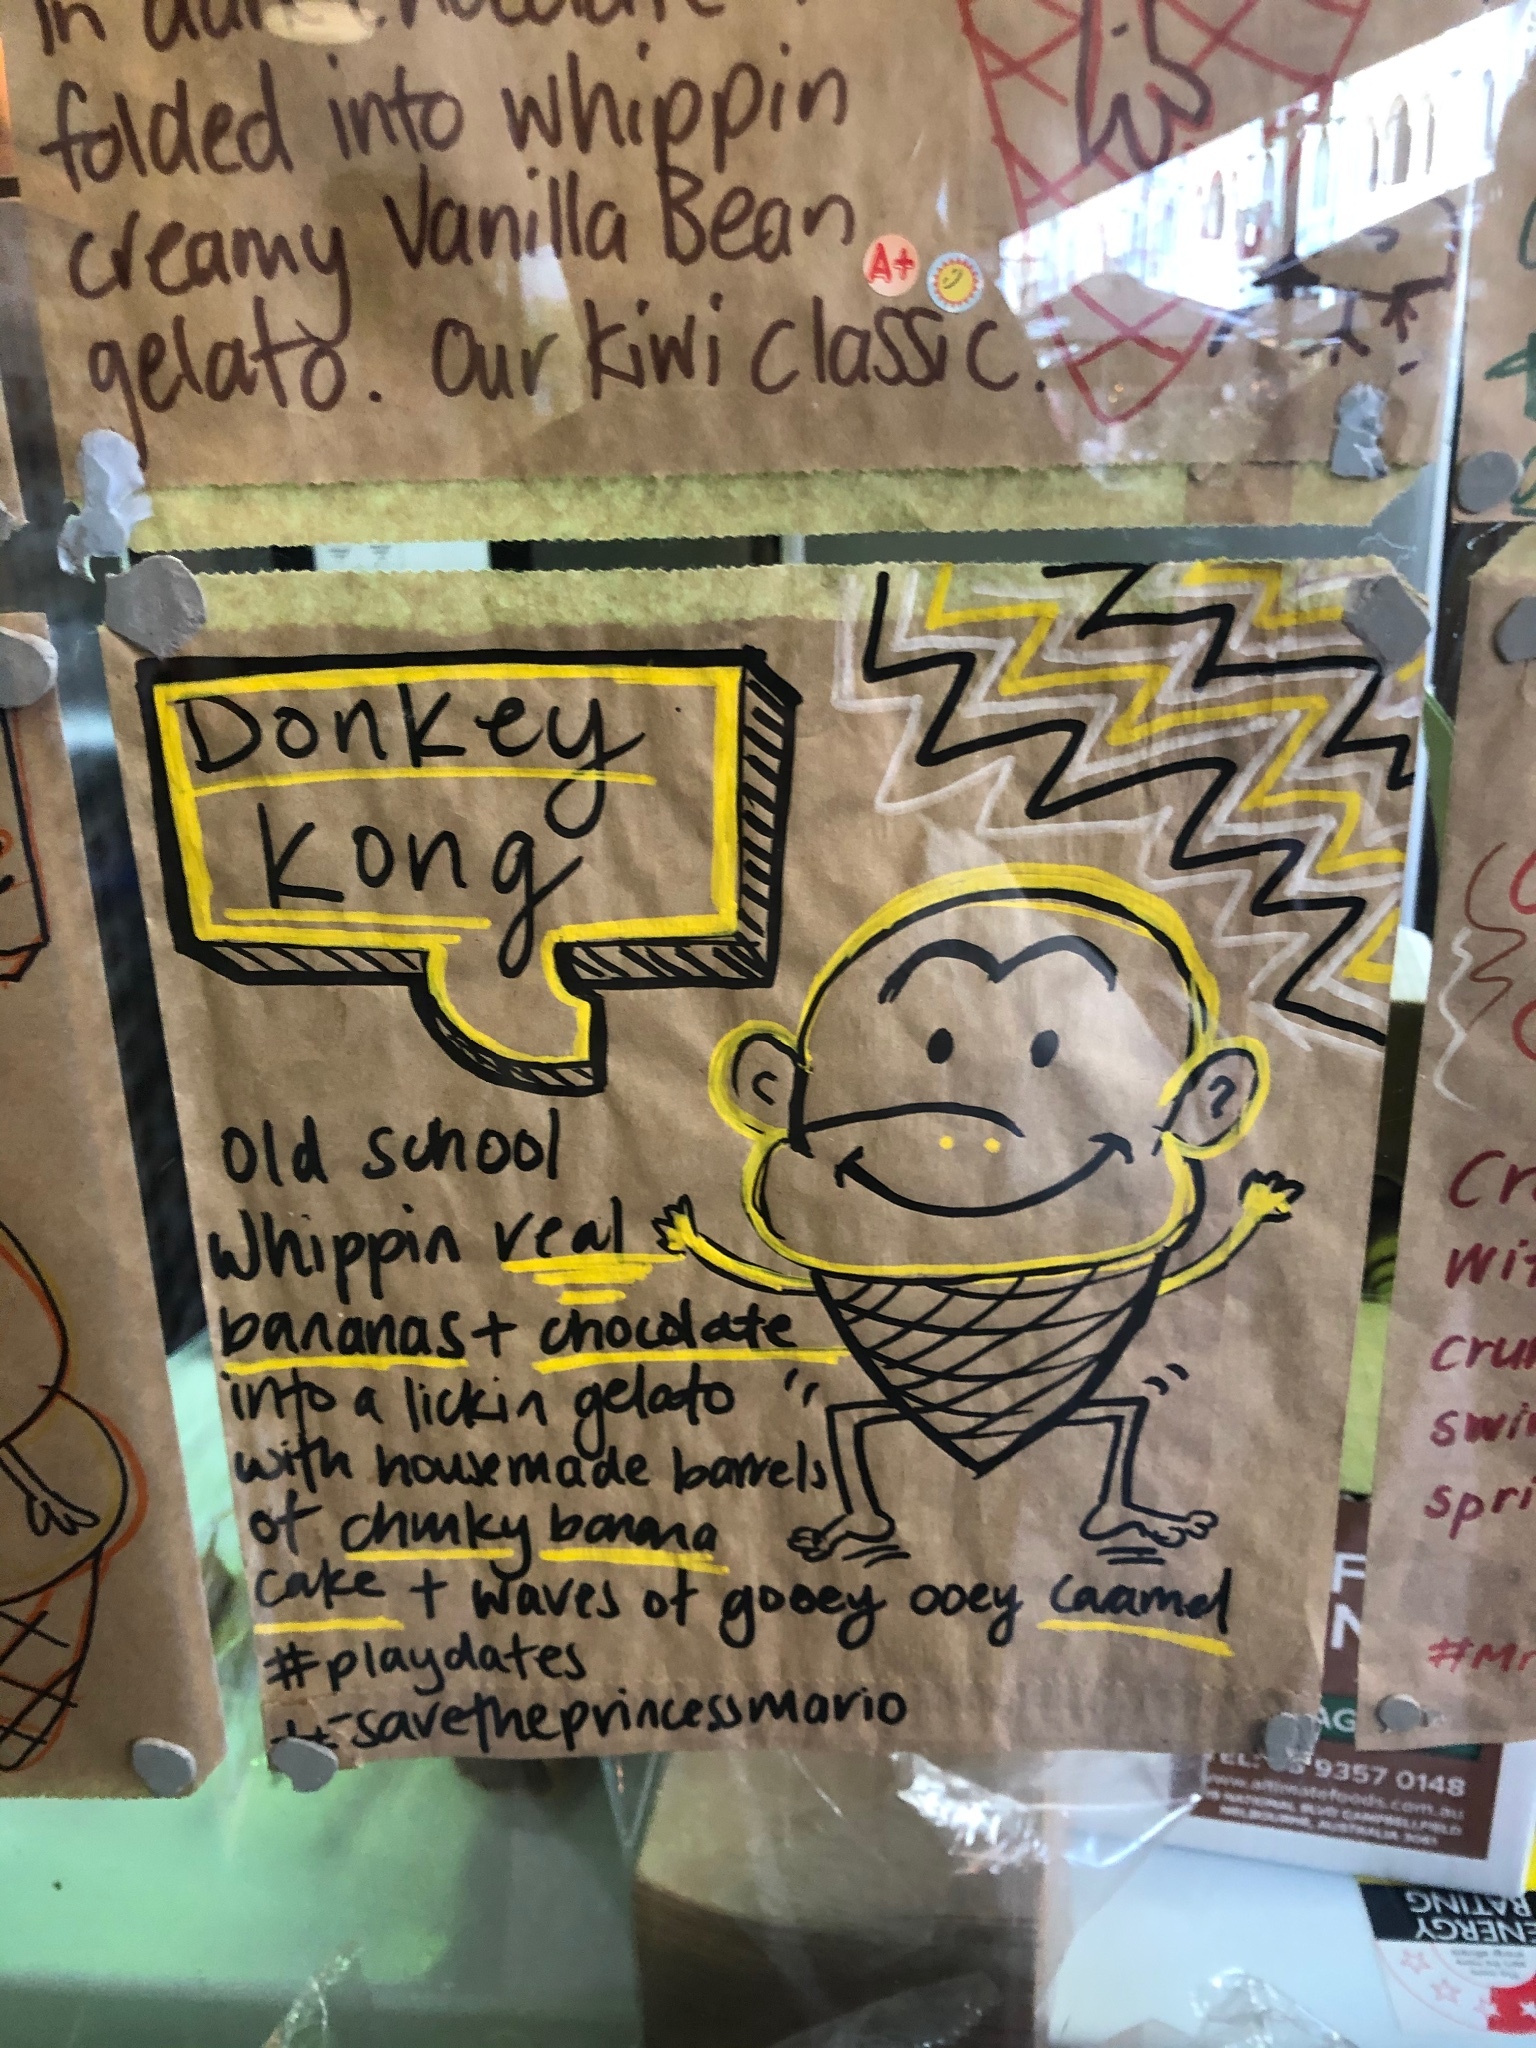 in dark chocolate
folded into whippin
creamy Vanilla Bean
A+
gelato. Our kiwi classic.
Donkey
Kong
Old school
Whippin real
bananas + chocolate
into a lickin gelato
with housemade barrels
of chunky banana
cake + waves of gooey ooey caamel
#playdates
#savetheprincessmario
with
#Mr
9357 0148
www.altimatefoods.com.au
NATIONAL BLVD CAMPBELLFIELD
MELBOURNE, AUSTRALIA 3061
ENERGY
RATING